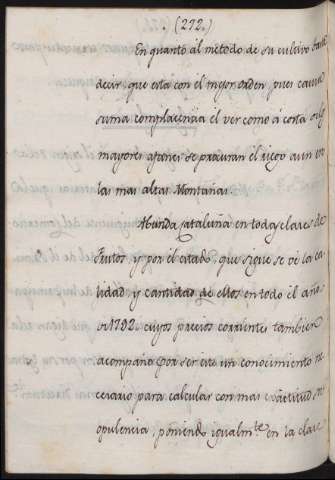 (272.)
En quanto al método de su cultivo
decir que esta con el mejor orden, pues causa
suma complacencia el ver como á costa de los
mayores afanes se procuran el riego aun en
las mas altas Montañas.
Abunda Cataluña en todas clases de
Frutos, y por el estado, que sigue se vé la ca-
lidad, y cantidad de ellos en todo el año
de 1792. cuyos precios corrientes tambien
acompaño por ser este un conocimiento ne-
cesario para calcular con mas exactitud su
opulencia; poniendo igualm.te en la clave